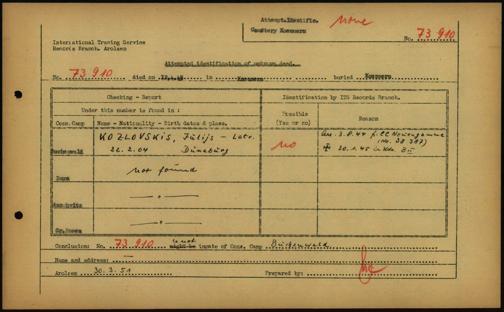 Attempt.Identific.
Cemetery Konnern
none
No. 73 910
International Tracing Service
Records Branch. Arolsen
Attempted identification of unknown dead.
No. 73 910 died on in buried
Checking - Report
Identification by ITS Records Branch.
Under this number is found in :
Possible (Yes or no)
Reason
Conc.Camp
Name - Nationality - Birth dates & place.
Buchenwald
KOZLOVSKIS, Jūlijs - Lett.
22.2.04 Dünaburg
no
3.8.44 f. CC Neuengamme
20.1.45
Dora
not found
Auschwitz
- " -
Gr.Rosen
- " -
Conclusion: No. 73 910 is not might be inmate of Conc. Camp Buchenwald
Name and address: —
Arolsen 30.3.51 Prepared by: